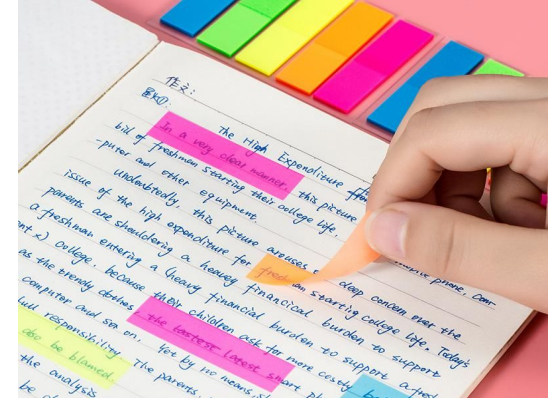 作文:
The High Expenditure
In a very clear manner, this picture
bill of freshman starting their college life.
-puter and other equipment. phone, com
Undoubtedly, this picture arouses deep concern over the
issue of the high expenditure for fresh an starting college life. Today's
parents are shouldering a heavey financial burden to support
a freshman entering a (heavy financial burden to support a fresh
ent x) college, because their children ask for more costly
as the trendy clothes, the tastest latest smart
computer and so on. Yet by no means
full responsibility. The parents,
also be blamed.
the analysis
be